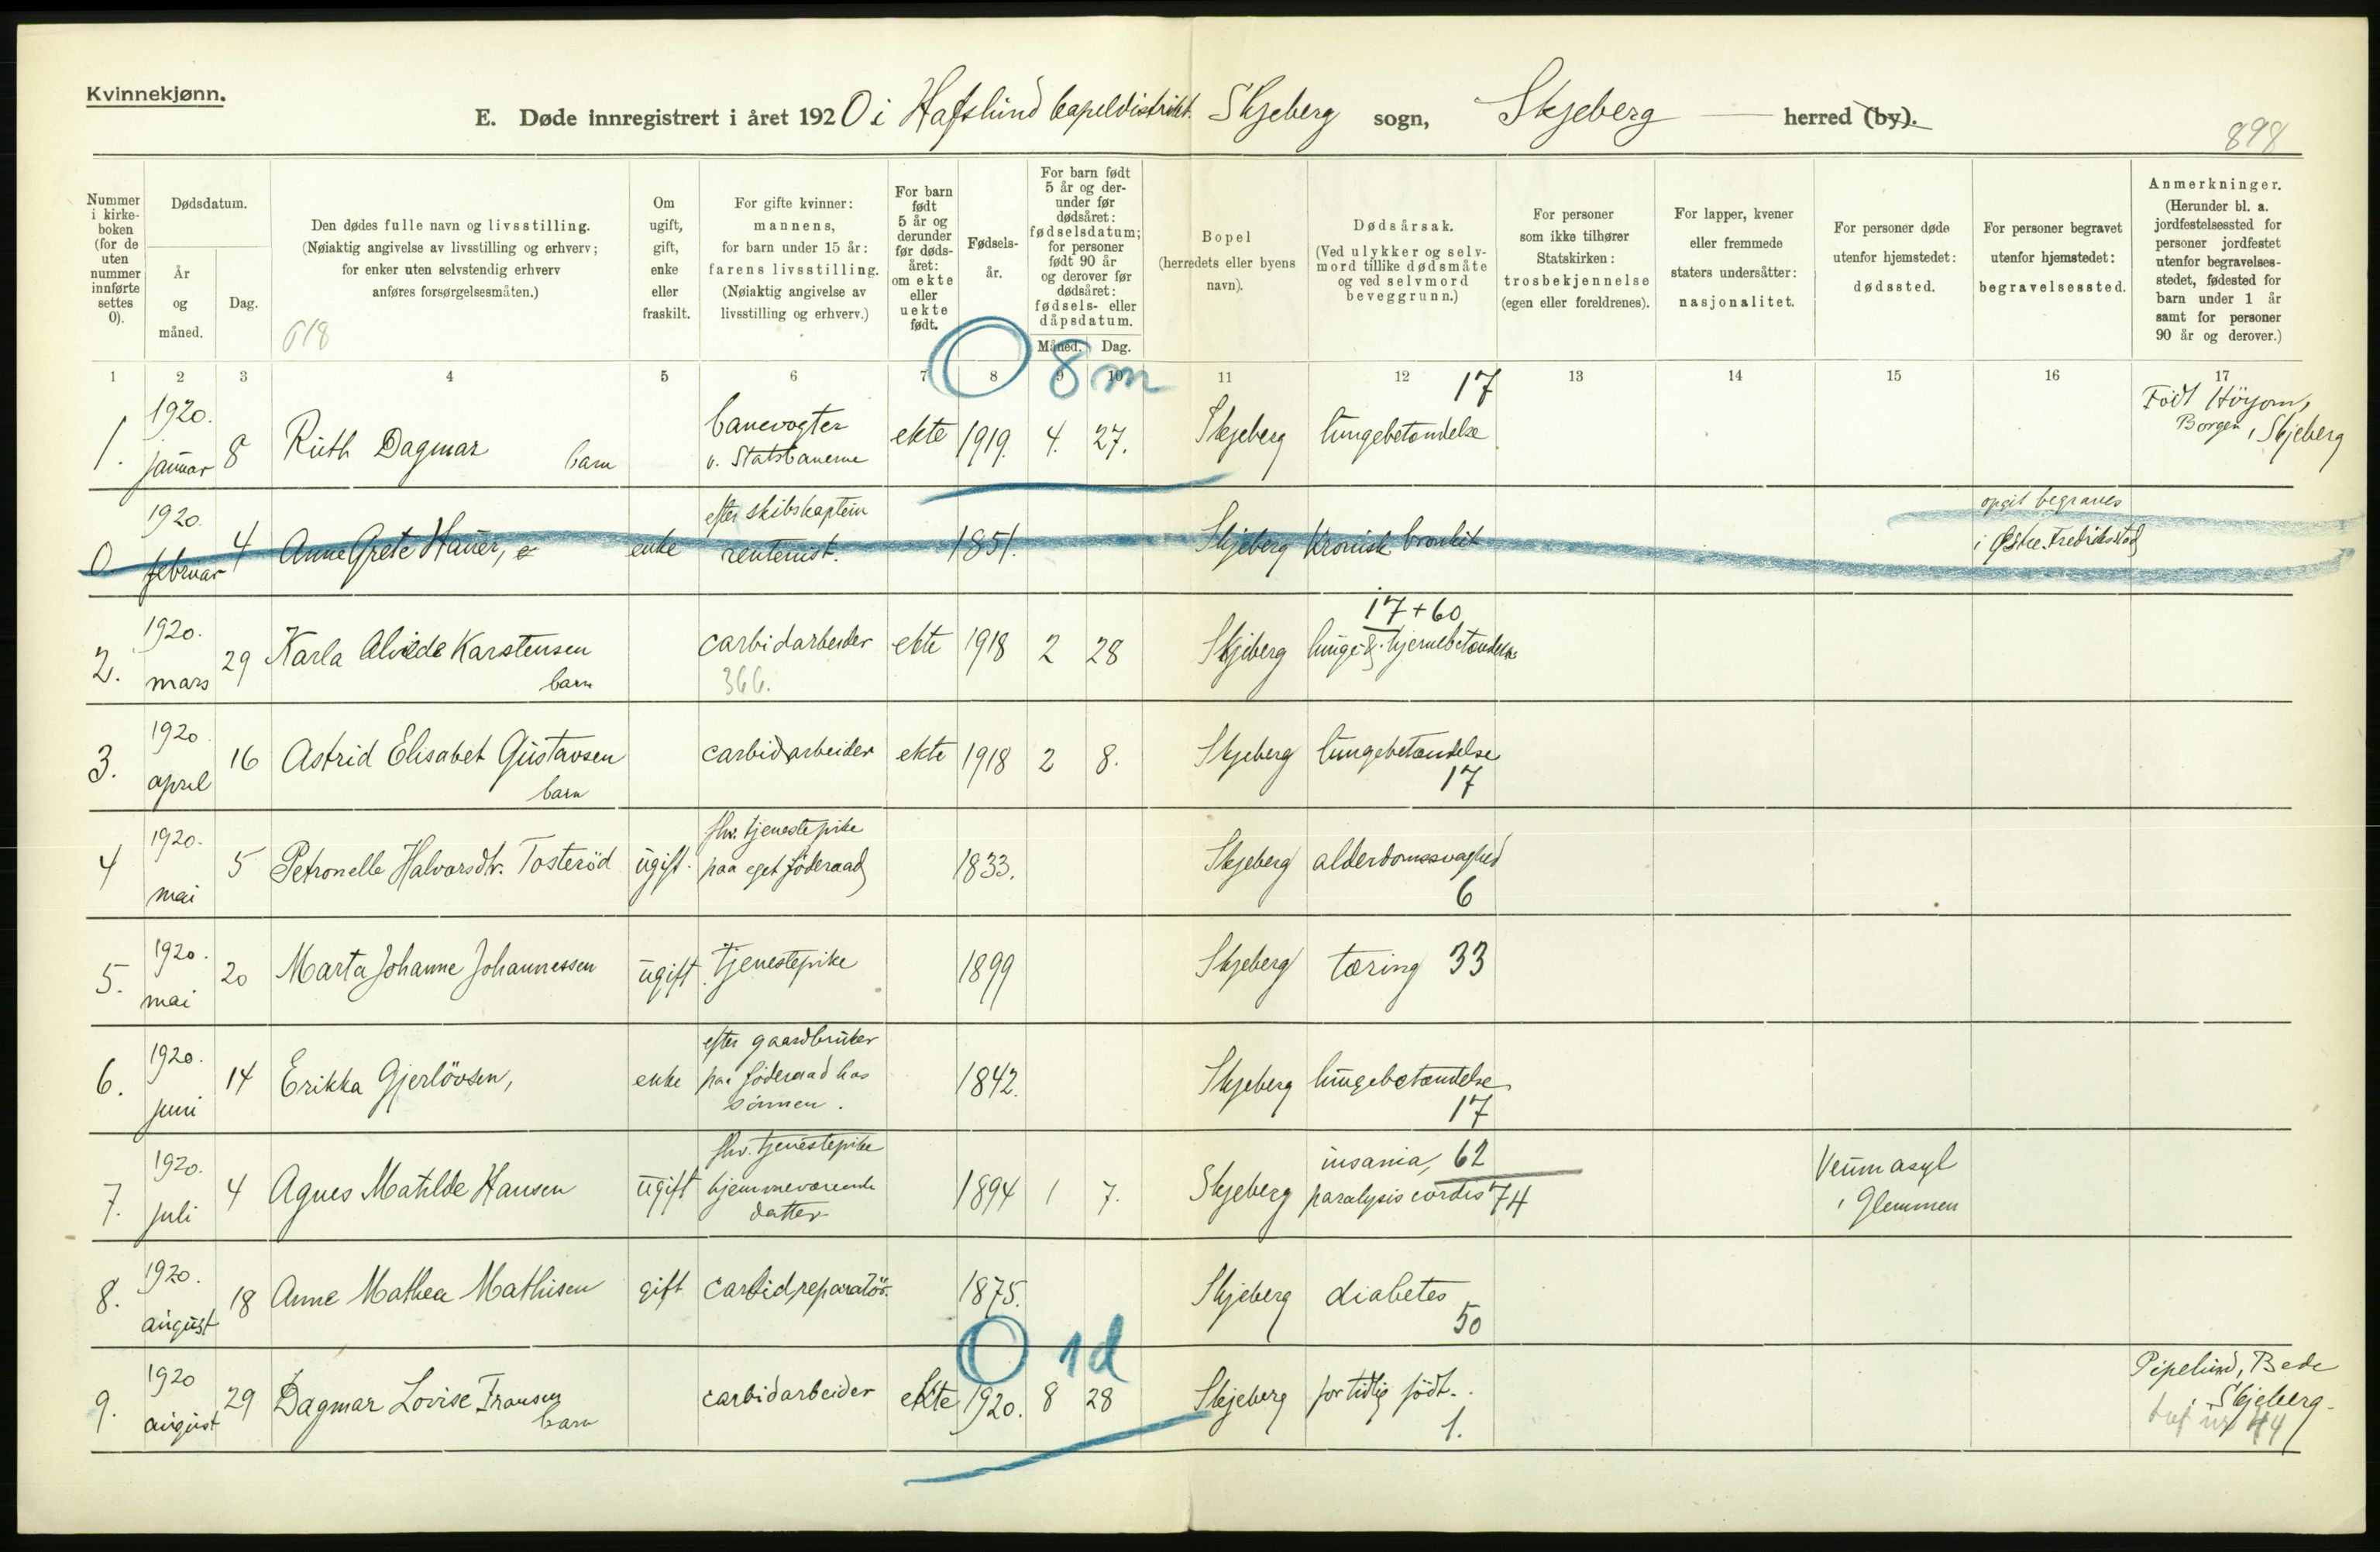 Kvinnekjønn.
E. Døde innregistrert i året 1920 i Hafslund capeldistrikt. Skjeberg sogn, Skjeberg herred (by).
898
Nummer i kirkeboken (for de uten nummer innførte settes 0).
Dødsdatum.
År og måned.
Dag.
Den dødes fulle navn og livsstilling.
(Nøiaktig angivelse av livsstilling og erhverv;
for enker uten selvstendig erhverv
anføres forsørgelsesmåten.)
618
Om ugift, gift, enke eller fraskilt.
For gifte kvinner:
mannens,
for barn under 15 år:
farens livsstilling.
(Nøiaktig angivelse av
livsstilling og erhverv.)
For barn født 5 år og derunder før dødsåret: om ekte eller uekte født.
Fødselsår.
For barn født 5 år og derunder før dødsåret: fødselsdatum; for personer født 90 år og derover før dødsåret: fødsels- eller dåpsdatum.
Måned. Dag.
Bopel
(herredets eller byens
navn).
Dødsårsak.
(Ved ulykker og selv-
mord tillike dødsmåte
og ved selvmord
beveggrunn.)
For personer
som ikke tilhører
Statskirken:
trosbekjennelse
(egen eller foreldrenes).
For lapper, kvener
eller fremmede
staters undersåtter:
nasjonalitet.
For personer døde
utenfor hjemstedet:
dødssted.
For personer begravet
utenfor hjemstedet:
begravelsessted.
Anmerkninger.
(Herunder bl. a.
jordfestelsessted for
personer jordfestet
utenfor begravelses-
stedet, fødested for
barn under 1 år
samt for personer
90 år og derover.)
1 2 3 4 5 6 7 8 9 10 11 12 13 14 15 16 17
O 8 m
1. 1920. januar 8 Ruth Dagmar barn banevogter v. Statsbanerne ekte 1919. 4. 27. Skjeberg lungebetændelse 17 Født Höyom, Borgen, Skjeberg
0 1920. februar 4 Anne Grete Hauer, enke efter skibskaptein rentenist. 1851. Skjeberg Kronisk bronkit opgit begraves i Østre Fredriksstad
2. 1920. mars 29 Karla Alvilde Karstensen barn carbidarbeider 366. ekte 1918 2 28 Skjeberg lunge & hjernebetændelse 17 + 60
3. 1920. april 16 Astrid Elisabet Gustavsen barn carbidarbeider ekte 1918 2 8. Skjeberg lungebetændelse 17
4 1920. mai 5 Petronelle Halvorsdtr. Tosteröd ugift. fhv. tjenestepike paa eget föderaad 1833. Skjeberg alderdomssvaghed 6
5. 1920. mai 20 Marta Johanne Johannessen ugift. tjenestepike 1899 Skjeberg tæring 33
6. 1920. juni 14 Erikka Gjerlövsen, enke efter gaardbruker paa föderaad hos sönnen. 1842. Skjeberg lungebetændelse 17
7. 1920. juli 4 Agnes Matilde Hansen ugift fhv. tjenestepike hjemmeværende datter 1894 1 7. Skjeberg insania, 62 paralysis cordis 74 Veum asyl i Glemmen
8. 1920. august 18 Anne Mathea Mathisen gift carbidreparatör. 1875. Skjeberg diabetes 50
O 1d
9. 1920 august 29 Dagmar Lovise Fransen barn carbidarbeider ekte 1920. 8 28 Skjeberg for tidlig födt. 1. Pipelund, Bede i Skjeberg. nr 44